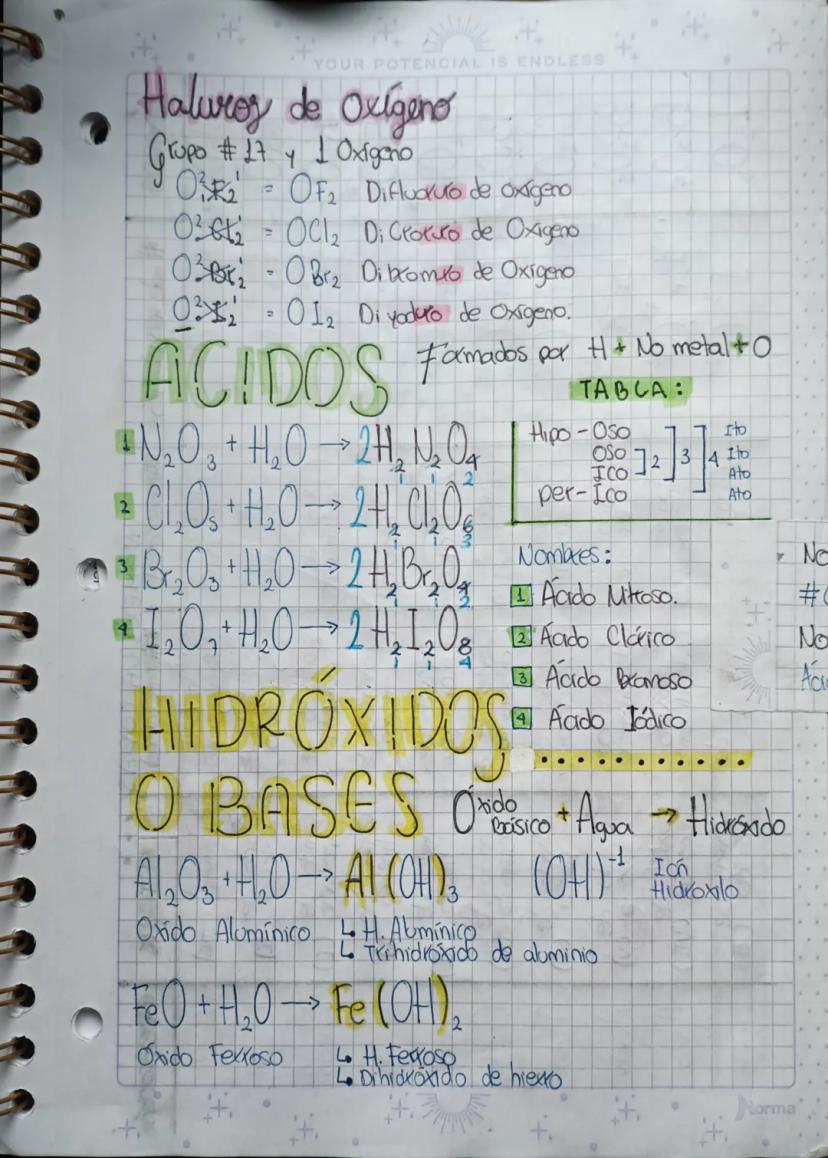 YOUR POTENCIAL IS ENDLESS
Haluros de Oxígeno
Grupo # 17 y 1 Oxígeno
O²F₂¹ = OF₂ Difluoruro de oxígeno
O²Cl₂¹ = OCl₂ DiCloruro de Oxigeno
O²Br₂¹ = OBr₂ Dibromuro de Oxígeno
O²I₂¹ = OI₂ Diyoduro de Oxígeno.
ÁCIDOS Formados por H + No metal + O
TABLA:
1 N₂O₃ + H₂O → 2H₂N₂O₄
1 1 2
2 Cl₂O₅ + H₂O → 2H₂Cl₂O₆
1 1 3
3 Br₂O₃ + H₂O → 2H₂Br₂O₄
1 1 2
4 I₂O₇ + H₂O → 2H₂I₂O₈
1 1 4
Hipo - Oso Ito
Oso ] 2 ] 3 ] 4 Ito
ICO Ato
per - Ico Ato
Nombres:
1 Ácido Nitroso.
2 Ácido Clórico
3 Ácido Bromoso
4 Ácido Iódico
No
#
No
Áci
HIDRÓXIDOS
O BASES Óxido Básico + Agua → Hidróxido
Al₂O₃ + H₂O → Al(OH)₃ (OH)⁻¹ Ión Hidroxilo
Oxido Alumínico ↳ H. Alumínico
↳ Trihidróxido de aluminio
FeO + H₂O → Fe(OH)₂
Óxido Ferroso ↳ H. Ferroso
↳ Dihidróxido de hierro
Norma